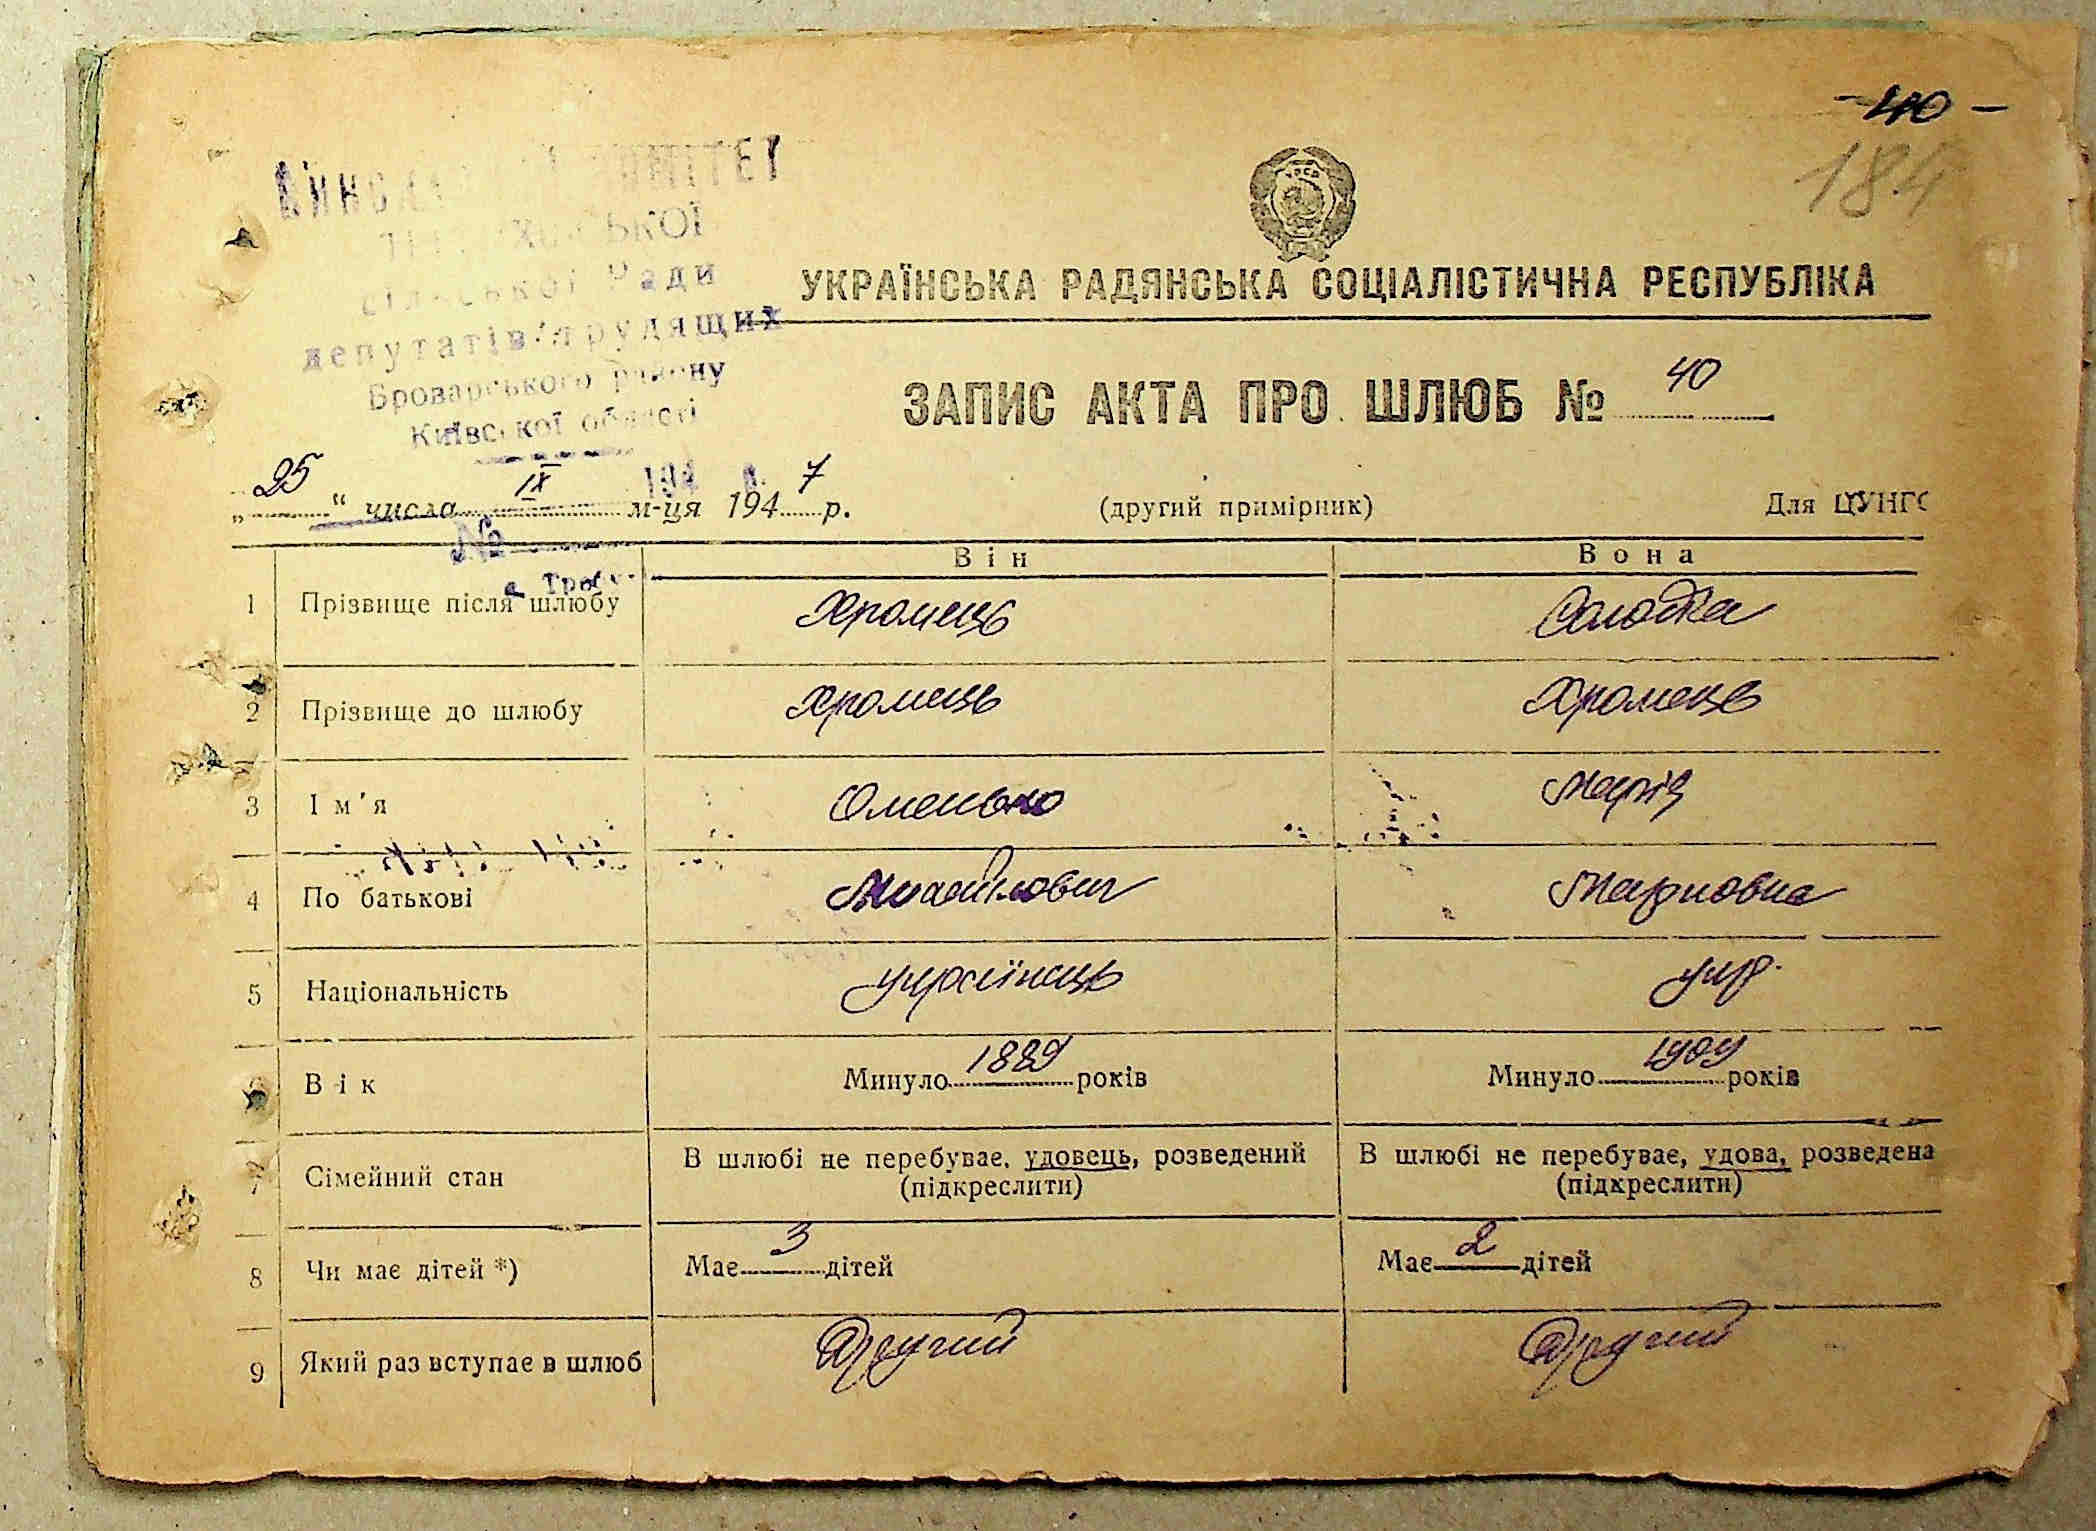 - 40 -
184
КОМІТЕТ
сільської Ради
депутатів трудящих
Броварського району
Київської області
УКРАЇНСЬКА РАДЯНСЬКА СОЦІАЛІСТИЧНА РЕСПУБЛІКА
ЗАПИС АКТА ПРО ШЛЮБ № 40
„25“ числа IX м-ця 1947 р. (другий примірник) Для ЦУНГО
194 р.
№
Він Вона
1 Прізвище після шлюбу Хромець Солодка
2 Прізвище до шлюбу Хромець Хромець
3 Ім'я Омелько Марія
4 По батькові Михайлович Марковна
5 Національність українець укр.
6 Вік Минуло 1889 років Минуло 1909 років
7 Сімейний стан В шлюбі не перебуває, удовець, розведений В шлюбі не перебуває, удова, розведена
(підкреслити) (підкреслити)
8 Чи має дітей *) Має 3 дітей Має 2 дітей
9 Який раз вступає в шлюб Другий Другий